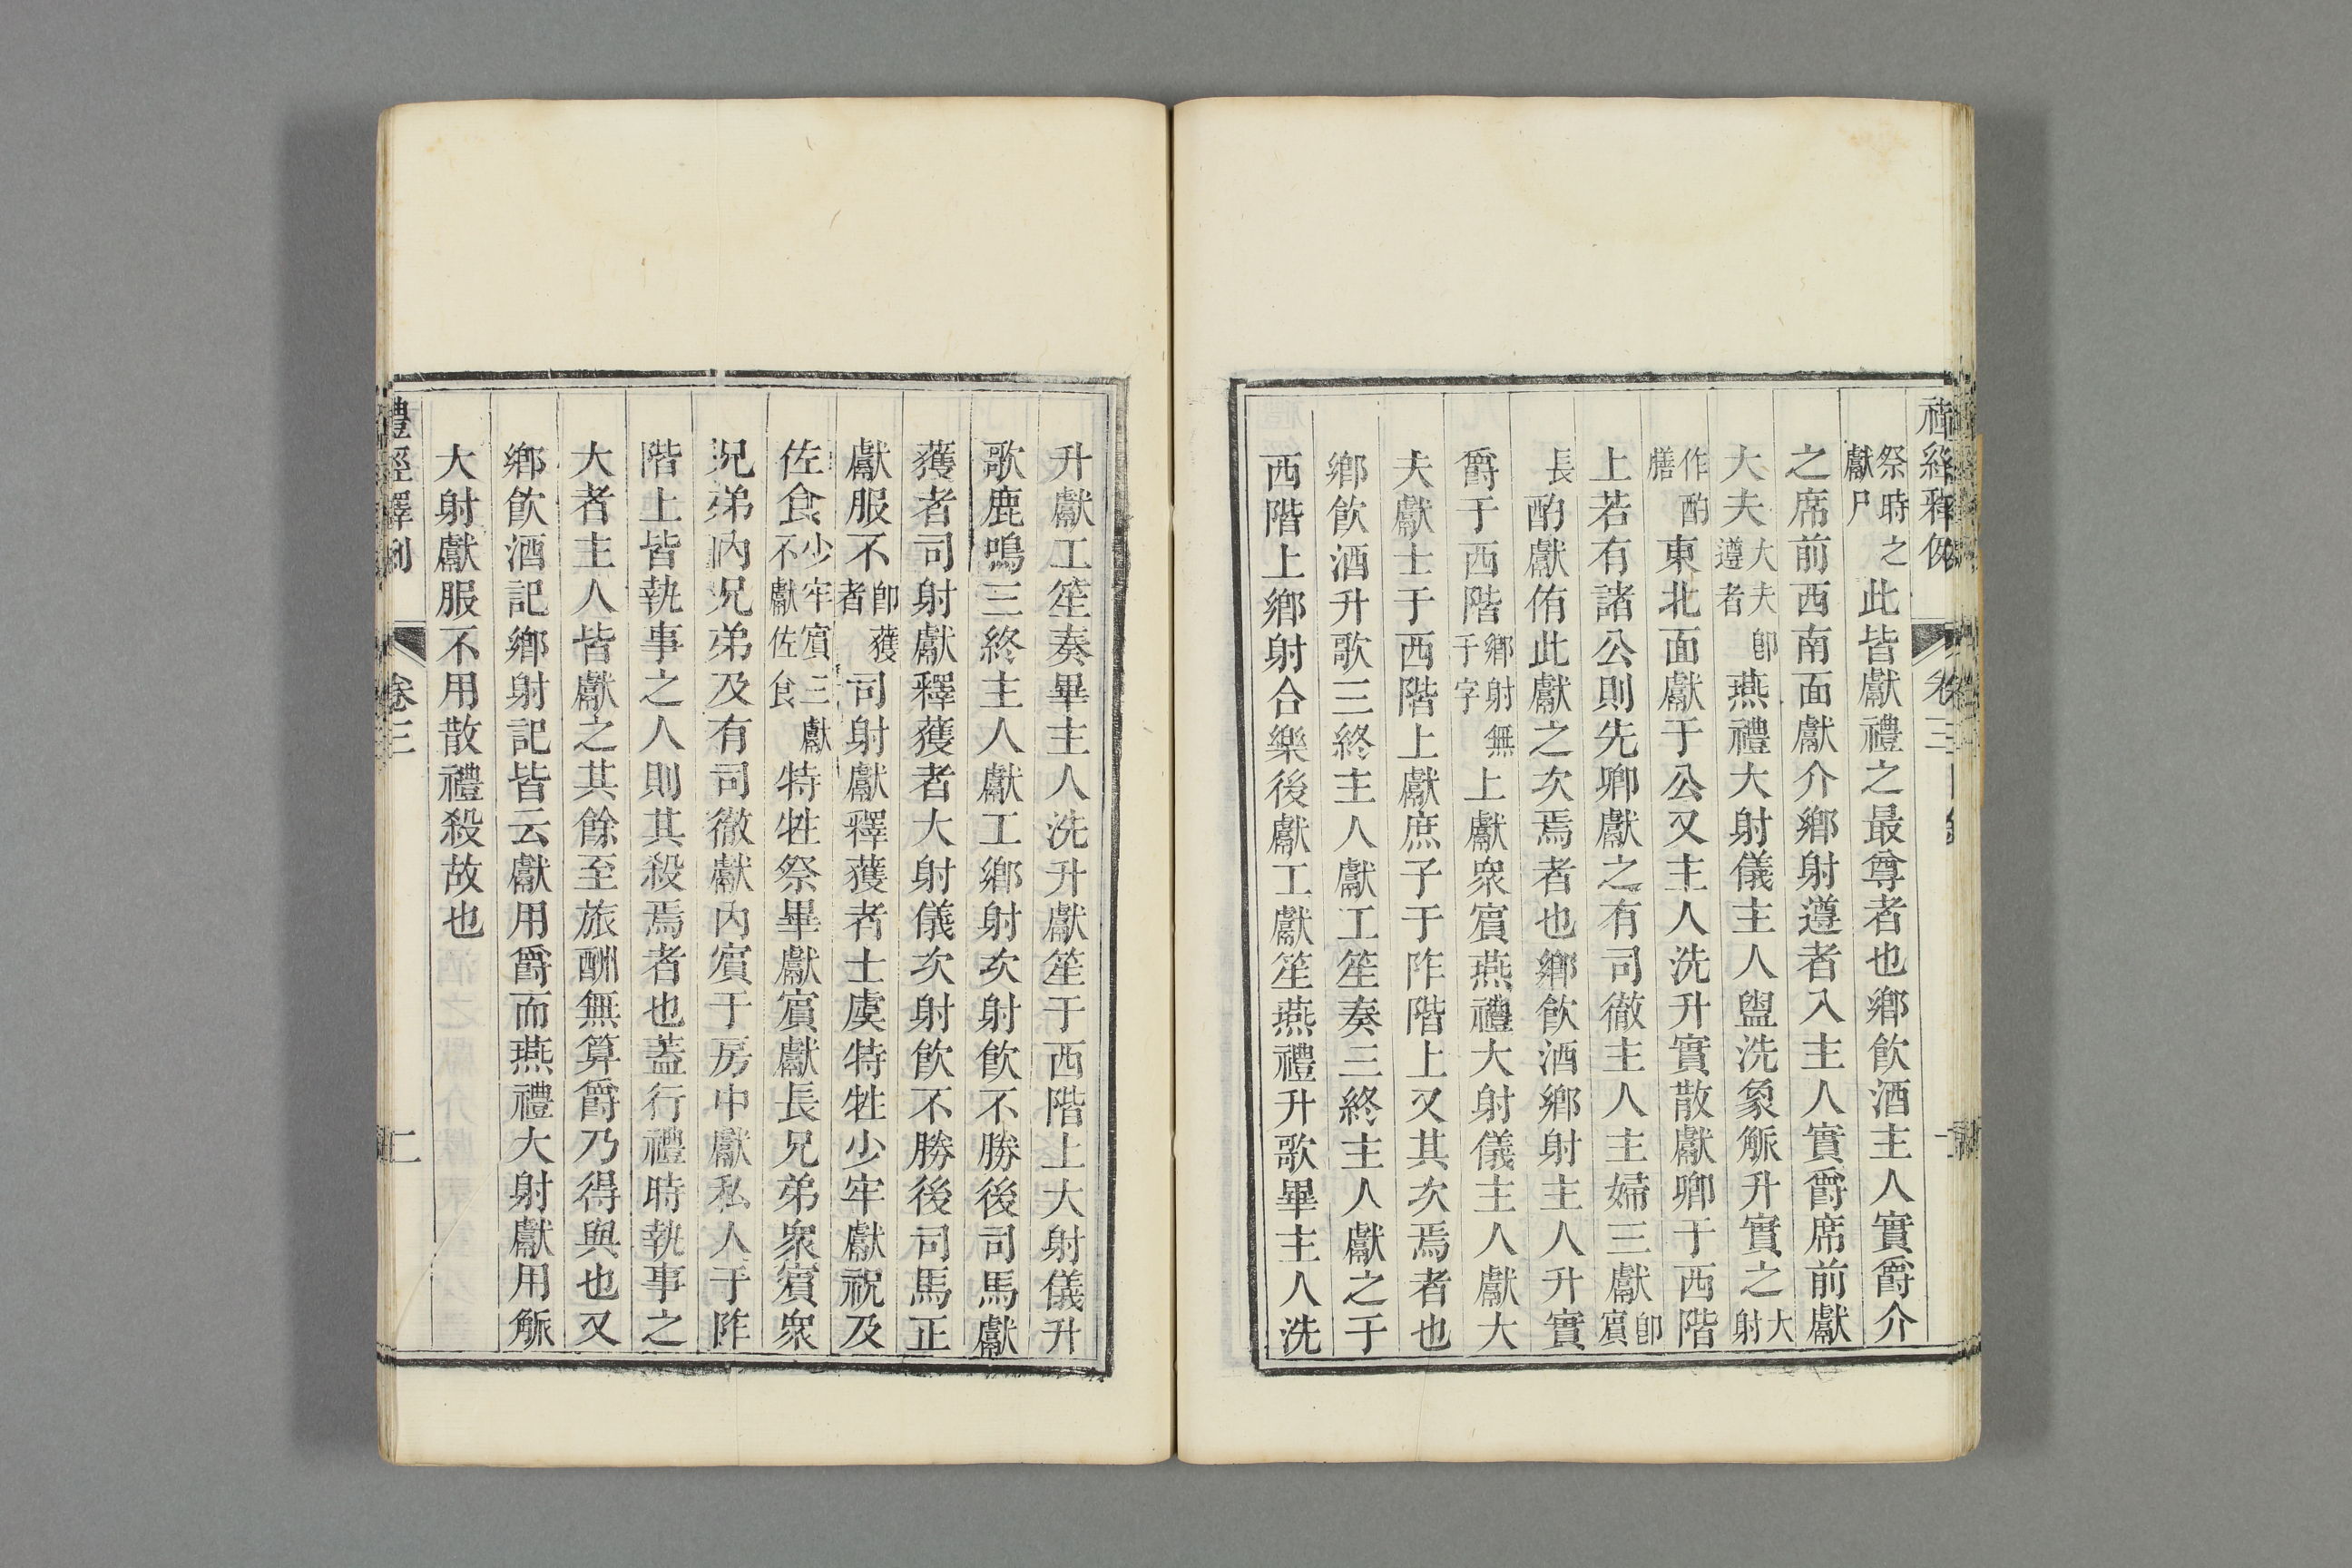 祭時之獻尸此皆獻禮之最尊者也鄉飲酒主人實爵介
之席前西南面獻介鄉射遵者入主人實爵席前獻
大夫大夫卽遵者燕禮大射儀主人盥洗象觚升實之大射
作酌膳東北面獻于公又主人洗升實散獻卿于西階
上若有諸公則先卿獻之有司徹主人主婦三獻卽賓
長酌獻侑此獻之次焉者也鄉飲酒鄉射主人升實
爵于西階鄉射無于字上獻眾賓燕禮大射儀主人獻大
夫獻士于西階上獻庶子于阼階上又其次焉者也
鄉飲酒升歌三終主人獻工笙奏三終主人獻之于
西階上鄉射合樂後獻工獻笙燕禮升歌畢主人洗
升獻工笙奏畢主人洗升獻笙于西階上大射儀升
歌鹿鳴三終主人獻工鄉射次射飲不勝後司馬獻
獲者司射獻釋獲者大射儀次射飲不勝後司馬正
獻服不卽獲者司射獻釋獲者士虞特牲少牢獻祝及
佐食少牢賓三獻不獻佐食特牲祭畢獻賓獻長兄弟眾賓眾
兄弟內兄弟及有司徹獻內賓于房中獻私人于阼
階上皆執事之人則其殺焉者也蓋行禮時執事之
大者主人皆獻之其餘至旅酬無算爵乃得與也又
鄉飲酒記鄉射記皆云獻用爵而燕禮大射獻用觚
大射獻服不用散禮殺故也
禮經釋例 卷三 二